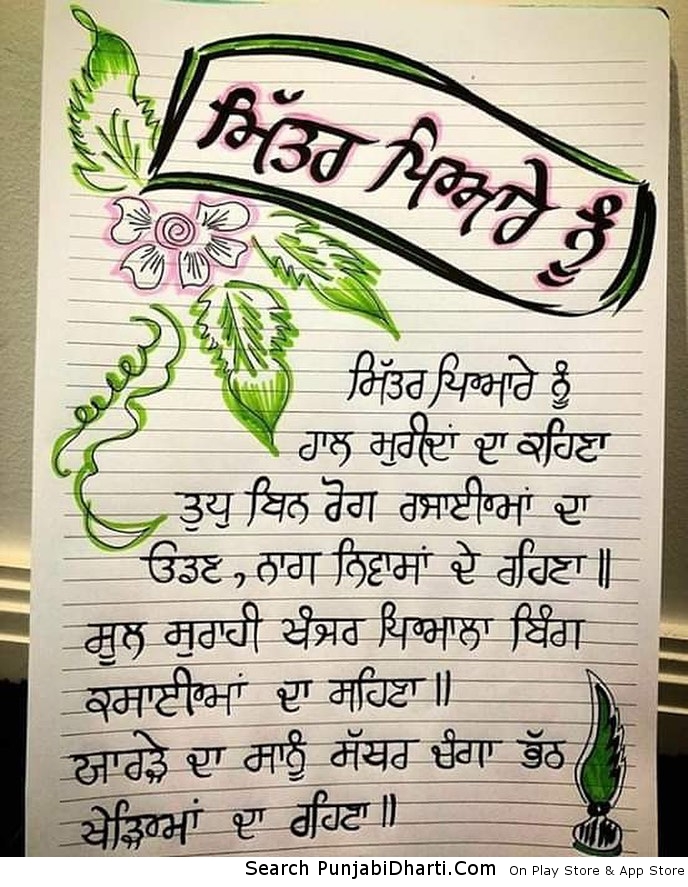 ਮਿੱਤਰ ਪਿਆਰੇ ਨੂੰ
ਮਿੱਤਰ ਪਿਆਰੇ ਨੂੰ
ਹਾਲ ਮੁਰੀਦਾਂ ਦਾ ਕਹਿਣਾ
ਤੁਧੁ ਬਿਨ ਰੋਗ ਰਜਾਈਆਂ ਦਾ
ਓਡਣ, ਨਾਗ ਨਿਵਾਸਾਂ ਦੇ ਰਹਿਣਾ॥
ਸੂਲ ਸੁਰਾਹੀ ਖੰਜਰ ਪਿਆਲਾ ਬਿੰਗ
ਕਸਾਈਆਂ ਦਾ ਸਹਿਣਾ॥
ਯਾਰੜੇ ਦਾ ਸਾਨੂੰ ਸੱਥਰ ਚੰਗਾ ਭੱਠ
ਖੇੜਿਆਂ ਦਾ ਰਹਿਣਾ॥
Search PunjabiDharti.Com On Play Store & App Store